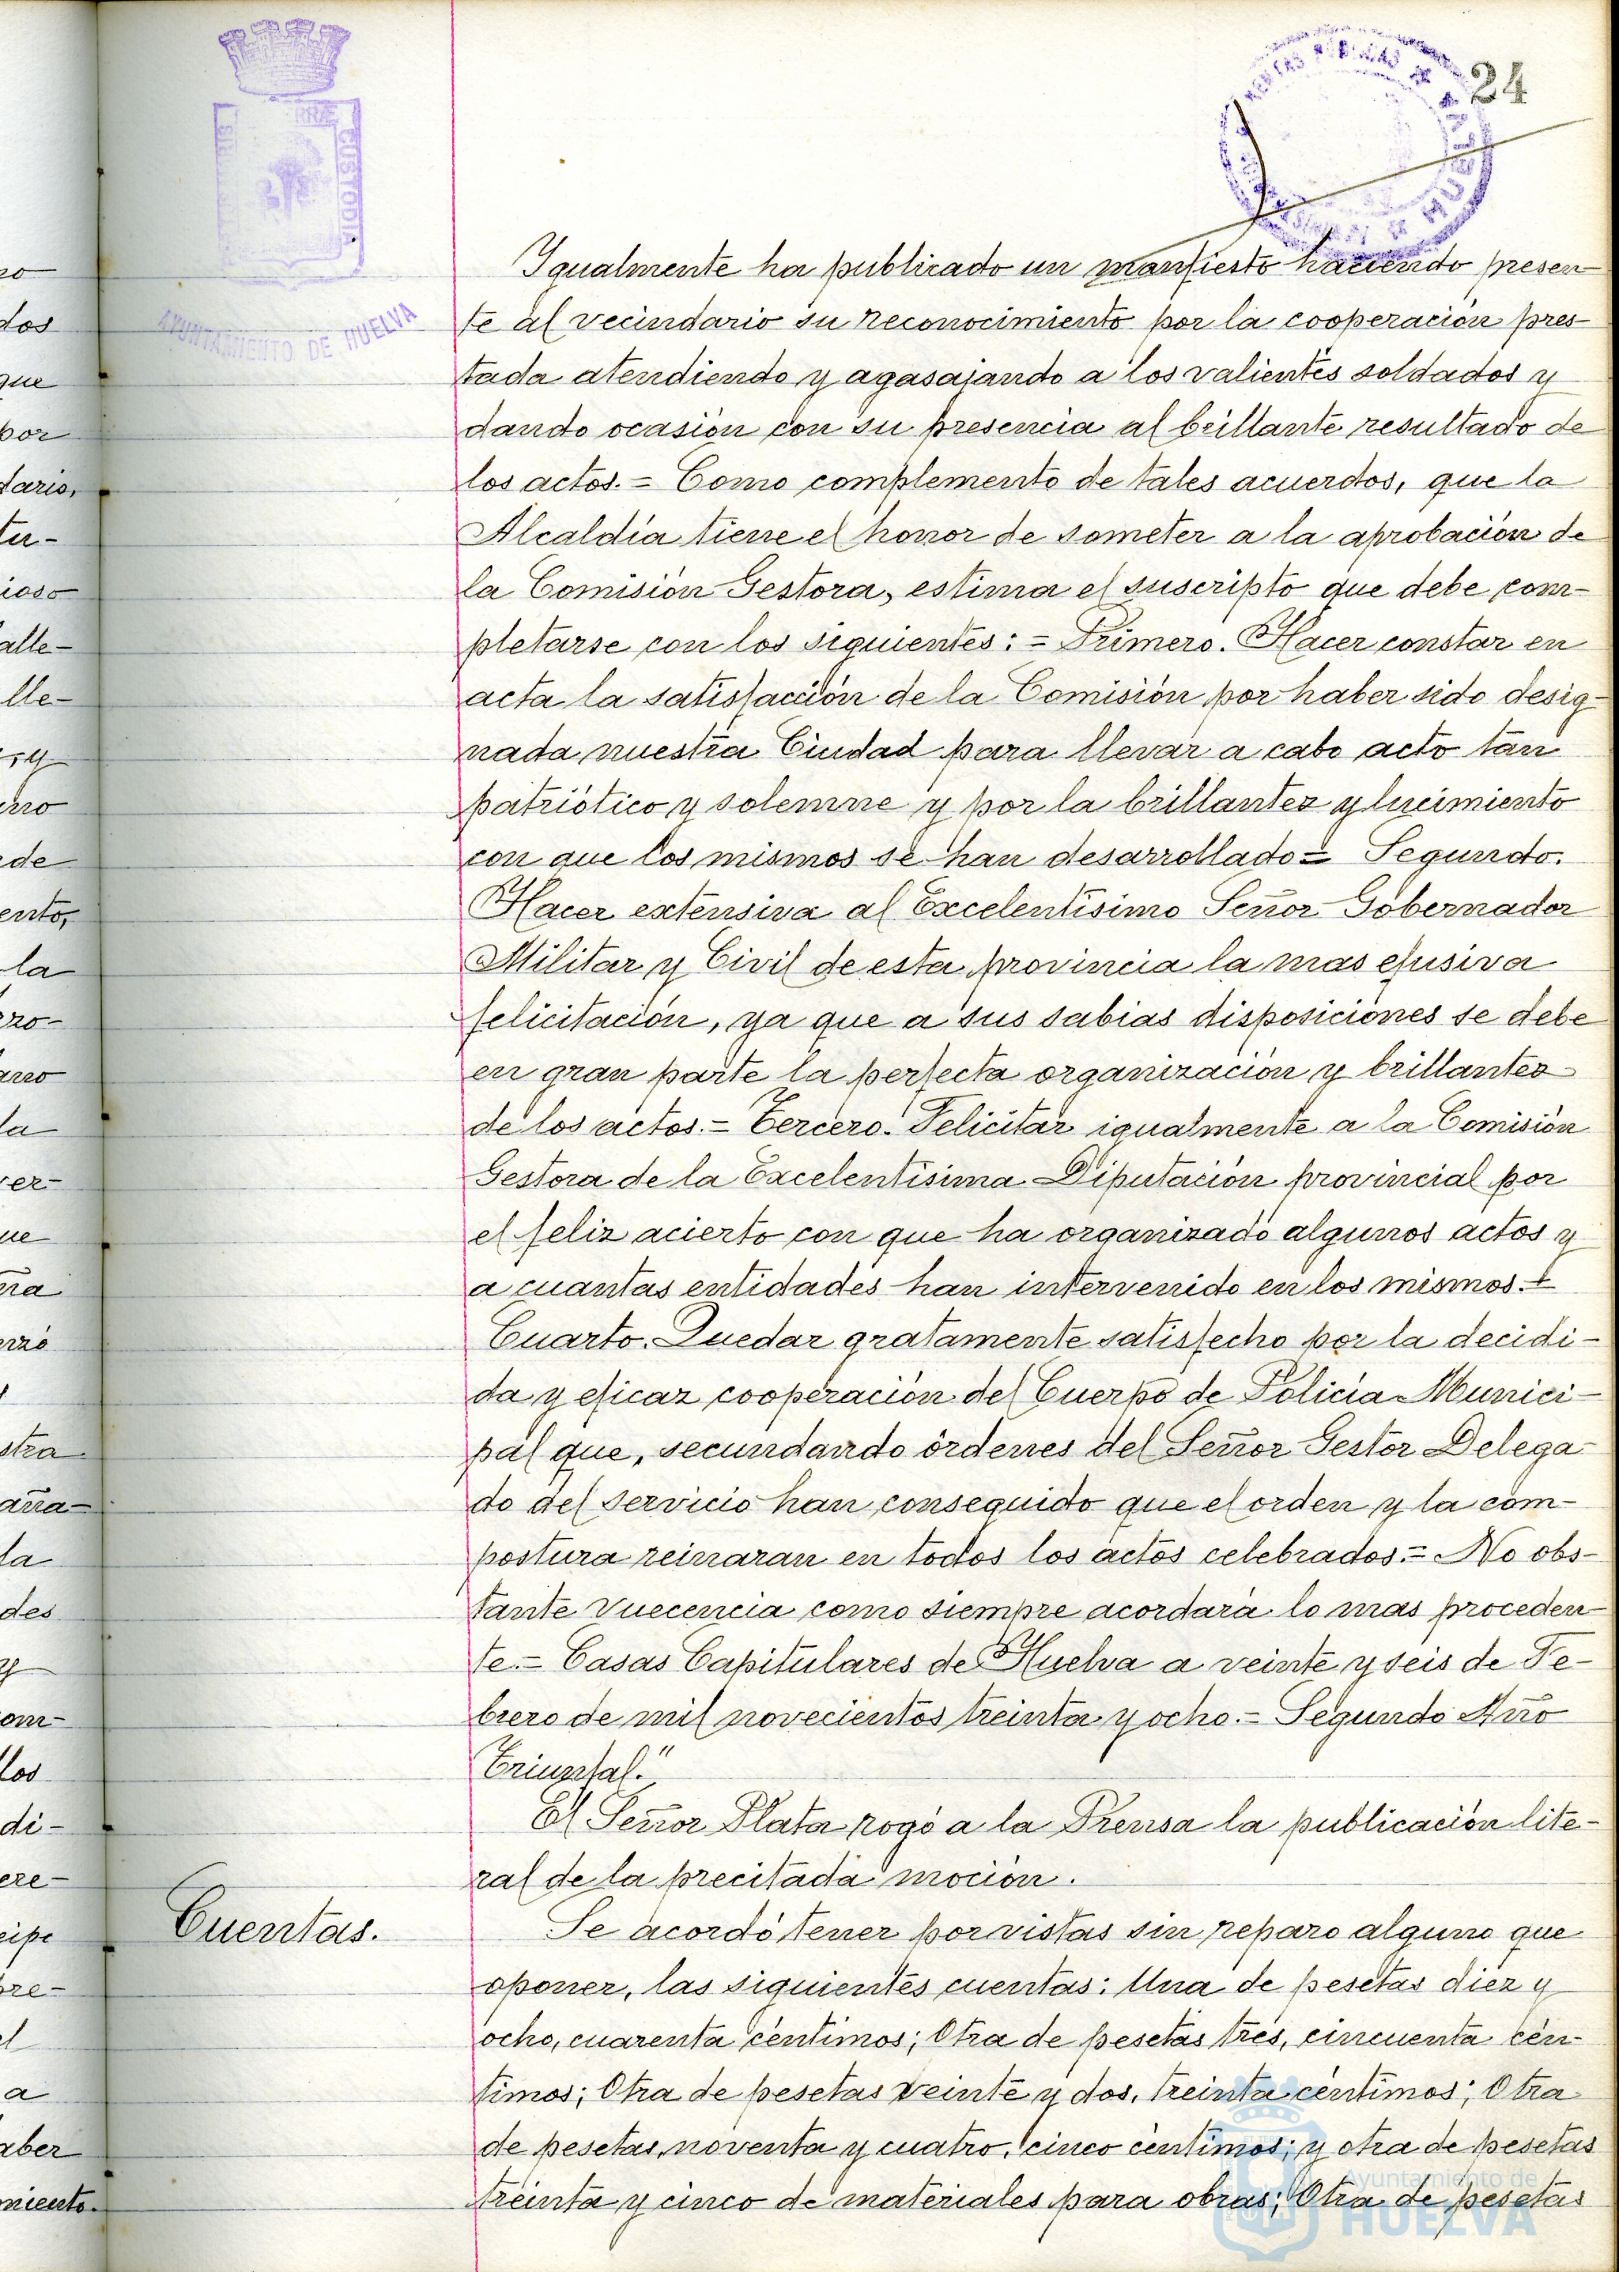 24
RRÆ CUSTODIA
AYUNTAMIENTO DE HUELVA
HUELVA
Igualmente ha publicado un manfiesto haciendo presen-
te al vecindario su reconocimiento por la cooperación pres-
tada atendiendo y agasajando a los valientes soldados y
dando ocasión con su presencia al brillante resultado de
los actos.= Como complemento de tales acuerdos, que la
Alcaldía tiene el honor de someter a la aprobación de
la Comisión Gestora, estima el suscripto que debe com-
pletarse con los siguientes:= Primero. Hacer constar en
acta la satisfacción de la Comisión por haber sido desig-
nada nuestra Ciudad para llevar a cabo acto tan
patriótico y solemne y por la brillantez y lucimiento
con que los mismos se han desarrollado= Segundo.
Hacer extensiva al Excelentísimo Señor Gobernador
Militar y Civil de esta provincia la mas efusiva
felicitación, ya que a sus sabias disposiciones se debe
en gran parte la perfecta organización y brillantez
de los actos.= Tercero. Felicitar igualmente a la Comisión
Gestora de la Excelentísima Diputación provincial por
el feliz acierto con que ha organizado algunos actos y
a cuantas entidades han intervenido en los mismos.=
Cuarto. Quedar gratamente satisfecho por la decidi-
da y eficaz cooperación del Cuerpo de Policía Munici-
pal que, secundando órdenes del Señor Gestor Delega-
do del servicio han conseguido que el orden y la com-
postura reinaran en todos los actos celebrados.= No obs-
tante Vuecencia como siempre acordará lo mas proceden-
te.= Casas Capitulares de Huelva a veinte y seis de Fe-
brero de mil novecientos treinta y ocho.= Segundo Año
Triunfal."
El Señor Plata rogó a la Prensa la publicación lite-
ral de la precitada moción.
Cuentas.
Se acordó tener por vistas sin reparo alguno que
oponer, las siguientes cuentas: Una de pesetas diez y
ocho, cuarenta céntimos; Otra de pesetas tres, cincuenta cén-
timos; Otra de pesetas veinte y dos, treinta céntimos; Otra
de pesetas, noventa y cuatro, cinco céntimos; y otra de pesetas
treinta y cinco de materiales para obras; Otra de pesetas
Ayuntamiento de
HUELVA